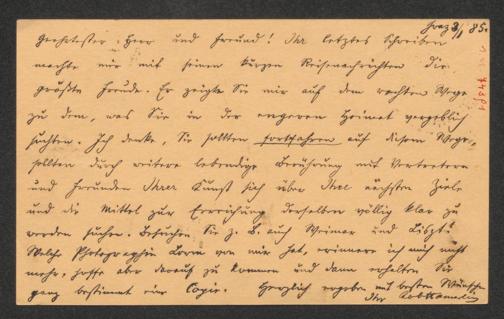 Graz 3/1 85.
Geehrtester Herr und Freund! Ihr letztes Schreiben
machte mir mit seinen kurzen Reisenachrichten die
größte Freude. Er zeigte Sie mir auf dem rechten Wege
zu dem, was Sie in der engeren Heimat vergeblich
suchten. Ich denke, Sie sollten fortfahren auf diesem Wege,
sollten durch weitere lebendige Berührung mit Vertretern
und Freunden Ihrer Kunst sich über Ihre nächsten Ziele
und die Mittel zur Erreichung derselben völlig klar zu
werden suchen. Besuchen Sie z. B. auch Weimar und Liszt!
Welche Photographie von mir hat, erinnere ich mich nicht
mehr, hoffe aber darauf zu kommen und dann erhalten Sie
ganz bestimmt eine Copie. Herzlich ergeben mit besten Wünschen
Ihr